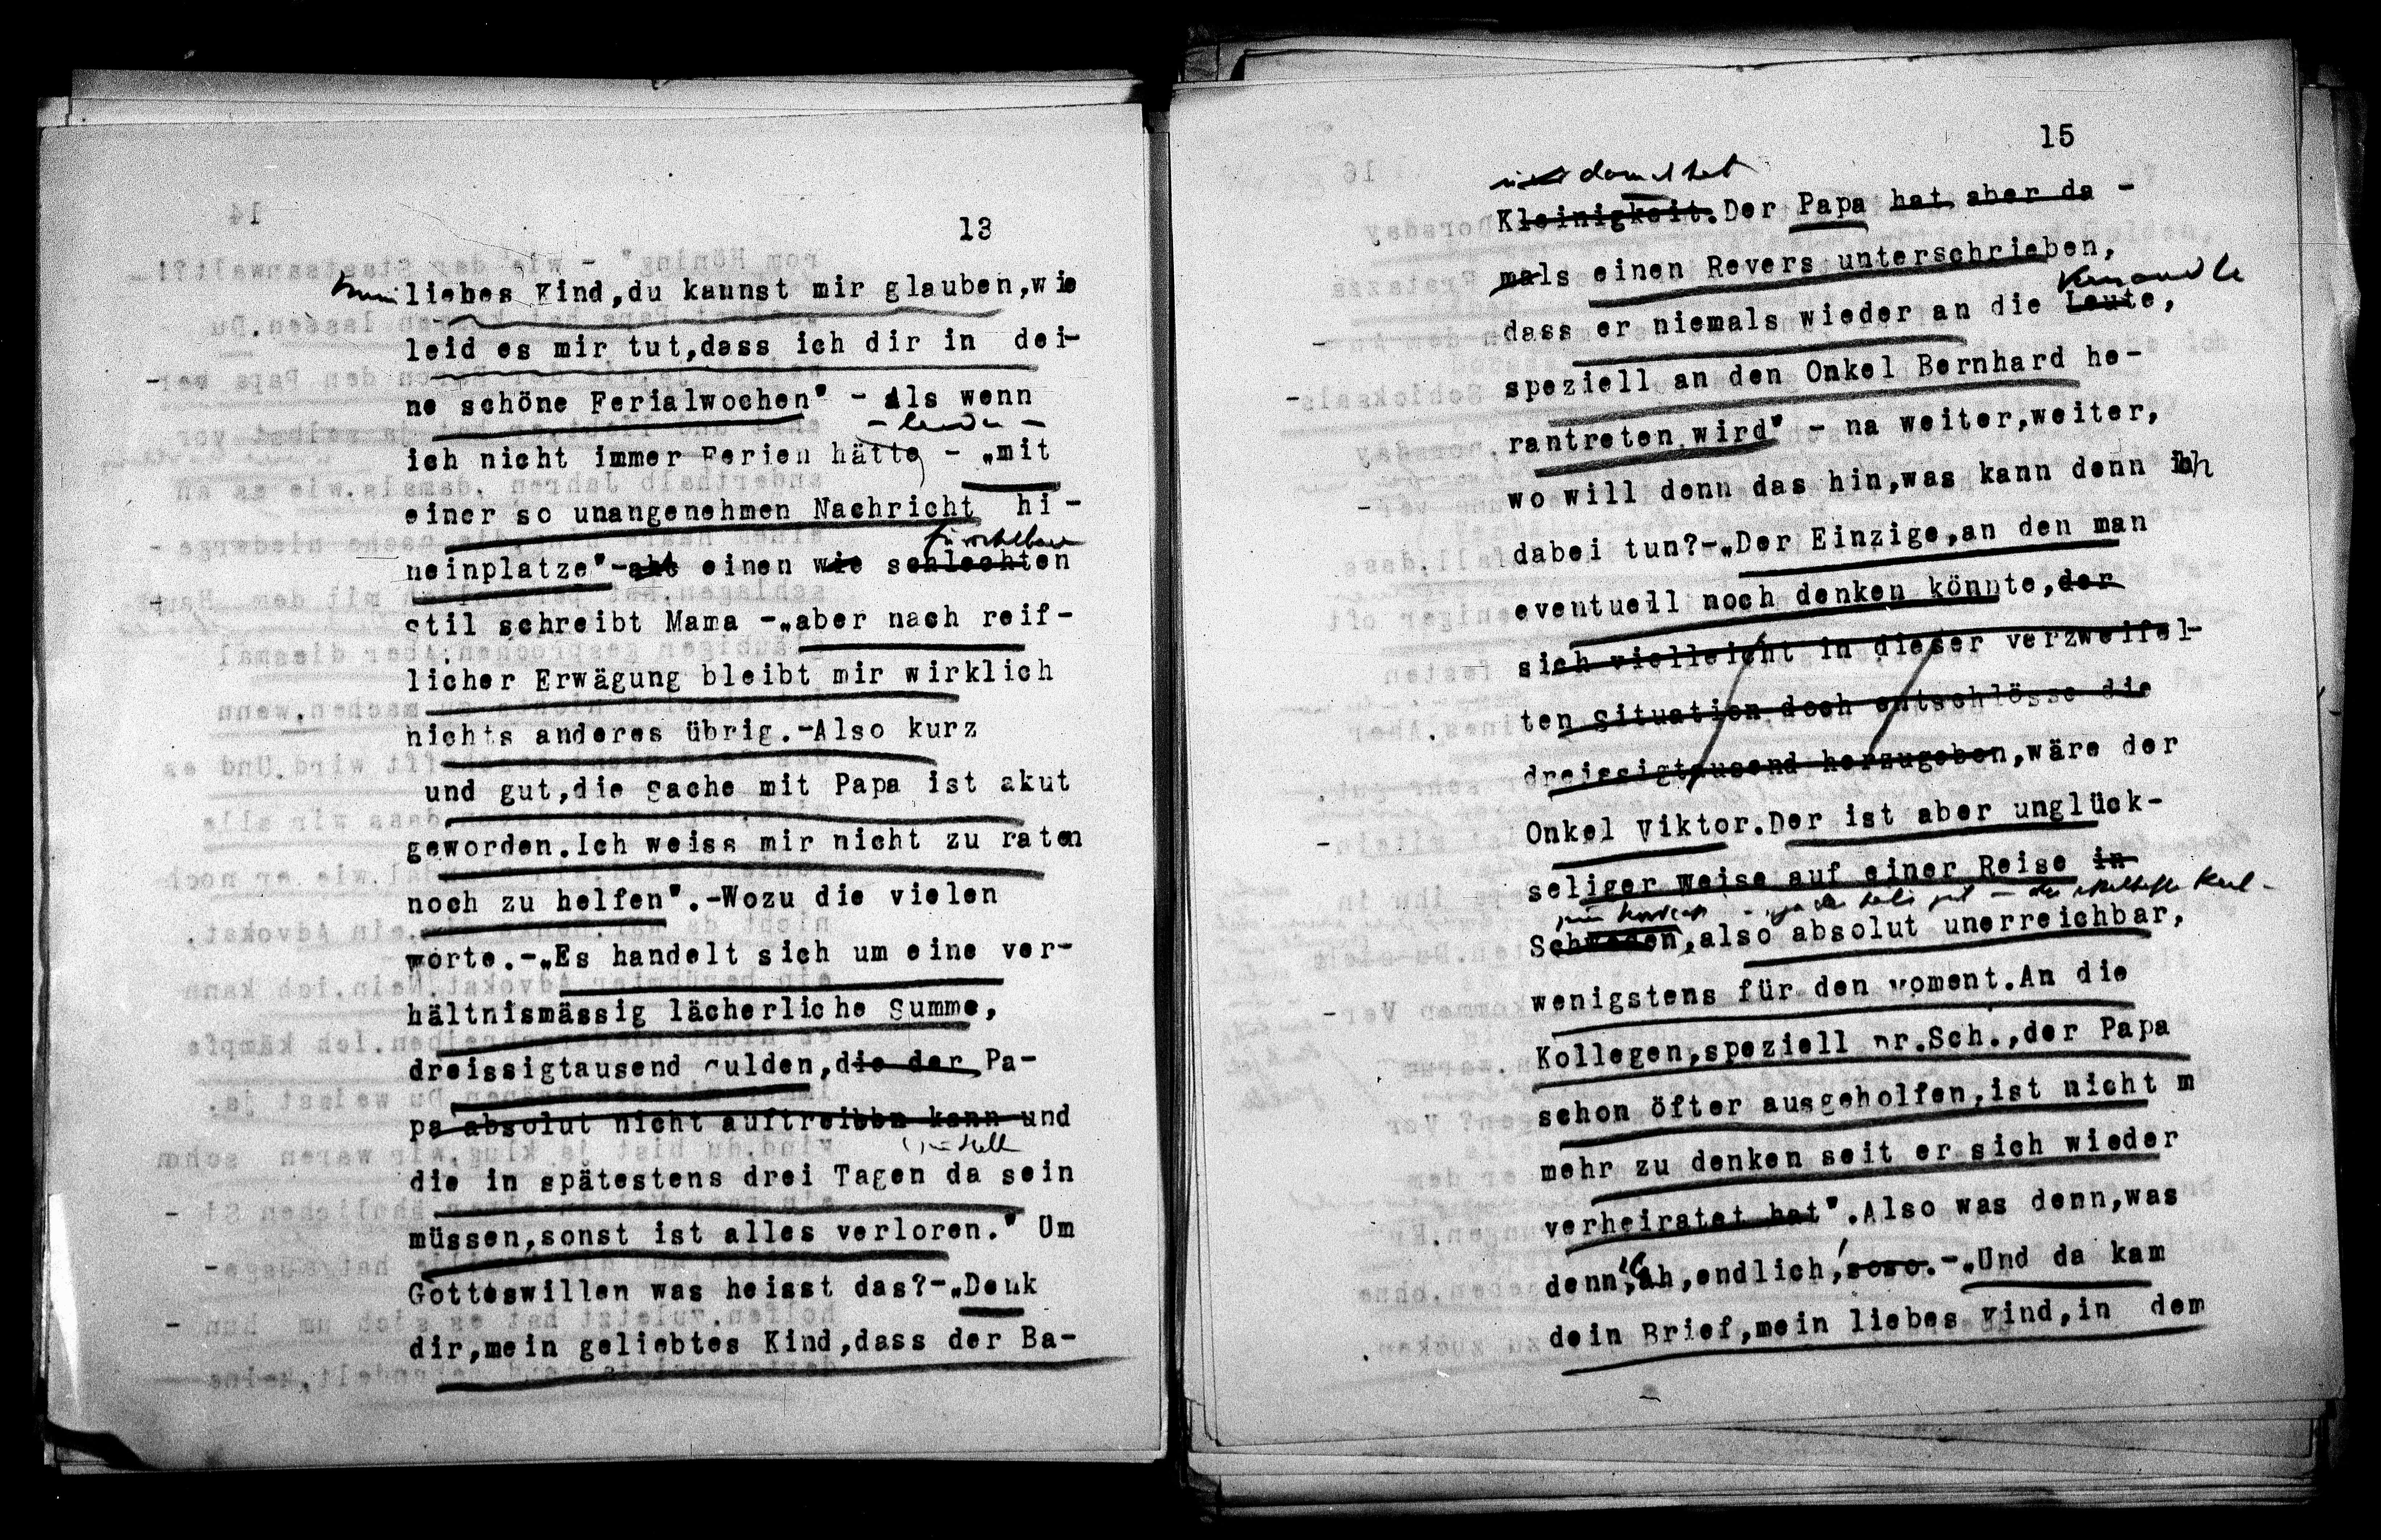 13
mein liebes Kind,du kannst mir glauben,wie
leid es mir tut,dass ich dir in dei-
ne schöne Ferialwochen" - Als wenn
- leider -
ich nicht immer Ferien hätte, - „mit
einer so unangenehmen Nachricht hi-
fürchterlichen
neinplatze"-aht einen wie schlechten
stil schreibt Mama -„aber nach reif-
licher Erwägung bleibt mir wirklich
nichts anderes übrig.-Also kurz
und gut,die Sache mit Papa ist akut
geworden.Ich weiss mir nicht zu raten
noch zu helfen".-Wozu die vielen
Worte.-„Es handelt sich um eine ver-
hältnismässig lächerliche Summe,
dreissigtausend Gulden,die der Pa-
pa absolut nicht auftreiben kann und
die in spätestens drei Tagen da sein
müssen,sonst ist alles verloren." Um
Gotteswillen was heisst das?-„Denk
dir,mein geliebtes Kind,dass der Ba-
15
damals hat
Kleinigkeit.Der Papa hat aber da -
mals einen Revers unterschrieben,
Verwandte
dass er niemals wieder an die Leute,
speziell an den Onkel Bernhard he-
rantreten wird" - na weiter,weiter,
wo will denn das hin,was kann denn ich
dabei tun?-„Der Einzige,an den man
eventuell noch denken könnte,der
sich vielleicht in dieser verzweifel-
ten Situation doch entschlösse die
dreissigtausend herzugeben,wäre der
Onkel Viktor.Der ist aber unglück-
seliger Weise auf einer Reise in
zum Nordcap -
Schweden,also absolut unerreichbar,
wenigstens für den Moment.An die
Kollegen,speziell Dr.Sch.,der Papa
schon öfter ausgeholfen,ist nicht m
mehr zu denken seit er sich wieder
verheiratet hat".Also was denn,was
denn,ah,endlich,soso.-„Und da kam
dein Brief,mein liebes Kind,in dem